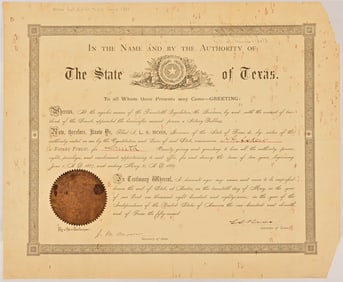 IN THE NAME AND BY THE AUTHORITY OF
The State of Texas.
To all Whom these Presents may Come—GREETING:
Whereas, At the regular session of the Twentieth Legislature, the Governor, by and with the consent of two-
thirds of the Senate appointed the hereinafter named person a Notary Public;
Now, therefore, Know Ye, That I, L. S. ROSS, Governor of the State of Texas, by virtue of the
authority vested in me by the Constitution and Laws of said State, commission
a NOTARY PUBLIC for
giving and granting to him all the authority, powers,
rights, privileges and emoluments appertaining to said office, for and during the term of two years, beginning
June 1, A. D. 1887, and ending May 31, A. D. 1889.
In Testimony Whereof, I hereunto sign my name and cause to be impressed
hereon the seal of State, at Austin, on the twentieth day of May, in the year
of our Lord one thousand eight hundred and eighty-seven, in the year of the
Independence of the United States of America the one hundred and eleventh,
and of Texas the fifty-second.
L. S. Ross
Governor of Texas
By the Governor:
Secretary of State.